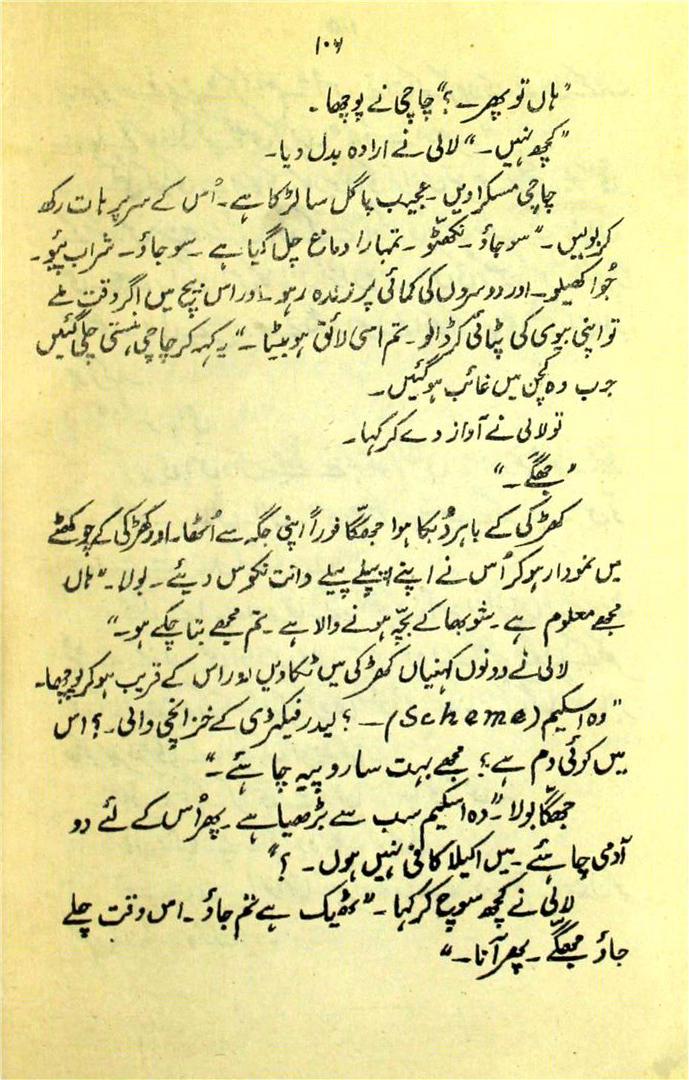 ۱۰۶
"ہاں تو پھر۔ ؟" چاچی نے پوچھا۔
"کچھ نہیں۔" لالی نے ارادہ بدل دیا۔
چاچی مسکرا دیں۔ عجیب پاگل سا لڑکا ہے۔ اُس کے سر پر ہات رکھ
کر بولیں۔ "سو جاؤ۔ نکھٹّو۔ تمہارا دماغ چل گیا ہے۔ سو جاؤ۔ شراب پئیو۔
جُوا کھیلو۔ اور دوسروں کی کمائی پر زندہ رہو۔ اور اس بیچ میں اگر وقت ملے
تو اپنی بیوی کی پٹائی کر ڈالو۔ تم اسی لائق ہو بیٹا۔" یہ کہہ کر چاچی ہنستی چلی گئیں
جب وہ کچن میں غائب ہو گئیں۔
تو لالی نے آواز دے کر کہا۔
"جھگّے۔"
کھڑکی کے باہر دُبکا ہوا جھگّا فوراً اپنی جگہ سے اُٹھا۔ اور کھڑکی کے چوکھٹے
میں نمودار ہو کر اُس نے اپنے پیلے پیلے دانت نکوس دیئے۔ بولا۔ "ہاں
مجھے معلوم ہے۔ شوبھا کے بچّہ ہونے والا ہے۔ تم مجھے بتا چکے ہو۔"
لالی نے دونوں کہنیاں کھڑکی میں ٹکا دیں اور اس کے قریب ہو کر پوچھا۔
"وہ اسکیم (Scheme)۔ ؟ لیدر فیکٹری کے خزانچی والی۔ ؟ اس
میں کوئی دم ہے؟ مجھے بہت سا روپیہ چاہئے۔"
جھگّا بولا۔ "وہ اسکیم سب سے بڑھیا ہے۔ پھر اُس کے لئے دو
آدمی چاہئے۔ میں اکیلا کافی نہیں ہوں۔ ؟"
لالی نے کچھ سوچ کر کہا۔ "ٹھیک ہے تم جاؤ۔ اس وقت چلے
جاؤ جھگّے۔ پھر آنا۔"